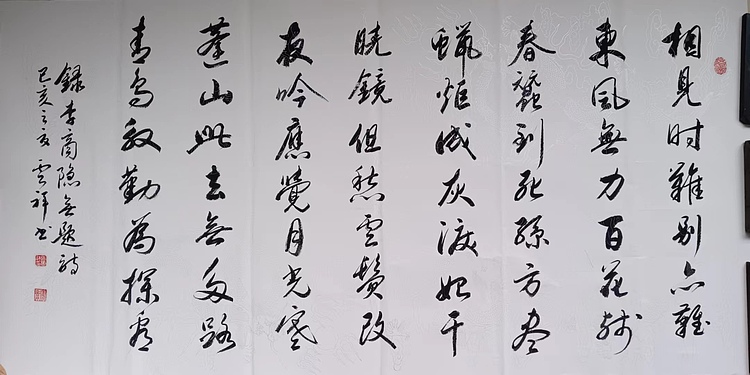 相見时難別亦難
東風無力百花残
春蠶到死絲方尽
蠟炬成灰淚始干
曉鏡但愁雲鬢改
夜吟應覺月光寒
蓬山此去無多路
青鳥殷勤為探看
錄李商隐無題詩
己亥之夏雲祥书